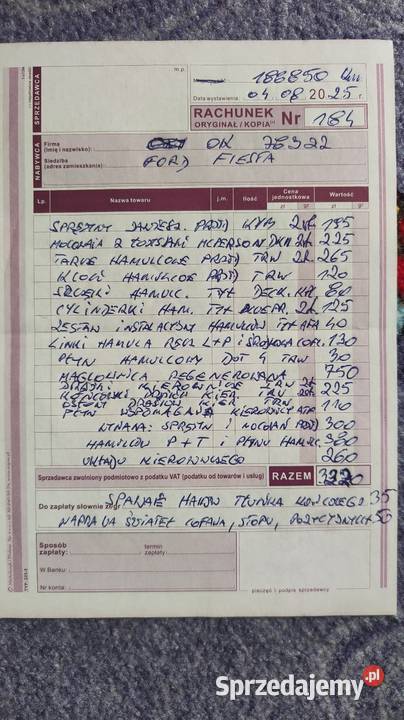 m.p.
Nr 188850 km
Data wystawienia 04 08 2025 r.
SPRZEDAWCA
RACHUNEK
ORYGINAŁ / KOPIA Nr 184
NABYWCA
Firma
(imię i nazwisko): OK 78322
Siedziba
(adres zamieszkania): FORD FIESTA
Lp. Nazwa towaru j.m. Ilość Cena jednostkowa Wartość
zł gr zł gr
SPRĘŻYNY ZAWIESZ. PRZÓD KYB 2szt 195
MOCOWANIA Z ŁOŻYSKAMI MCPERSON 225
TARCZE HAMULCOWE PRZÓD TRW 2szt. 265
KLOCKI HAMULCOWE PRZÓD TRW 120
SZCZĘKI HAMULC. TYŁ 80
CYLINDERKI HAM. TYŁ 125
ZESTAW INSTALACYJNY HAMULCÓW TYŁ ATE 40
LINKI HAMULCA RĘCZ L+P i ŚRODKOWA 130
PŁYN HAMULCOWY DOT 4 TRW 30
MAGLOWNICA REGENEROWANA 750
DRĄŻKI KIEROWNICZE TRW
KOŃCÓWKI DRĄŻKA KIER. TRW 225
OSŁONY DRĄŻKÓW KIER. TRW 110
PŁYN WSPOMAGANIA KIEROWNICY ATF
WYMIANA: SPRĘŻYN i MOCOWAŃ PRZÓD 300
HAMULCÓW P+T i PŁYNU HAMULC. 360
UKŁADU KIEROWNICZEGO 260
Sprzedawca zwolniony podmiotowo z podatku VAT (podatku od towarów i usług) RAZEM 3220
Do zapłaty słownie zł/gr
SPAWANIE TŁUMIKA KOŃCOWEGO 35
NAPRAWA ŚWIATEŁ COFANIA, STOPU, POZYCYJNYCH 50
Sposób
zapłaty: termin
zapłaty:
W Banku:
Nr konta:
pieczęć i podpis sprzedawcy
Sprzedajemy.pl